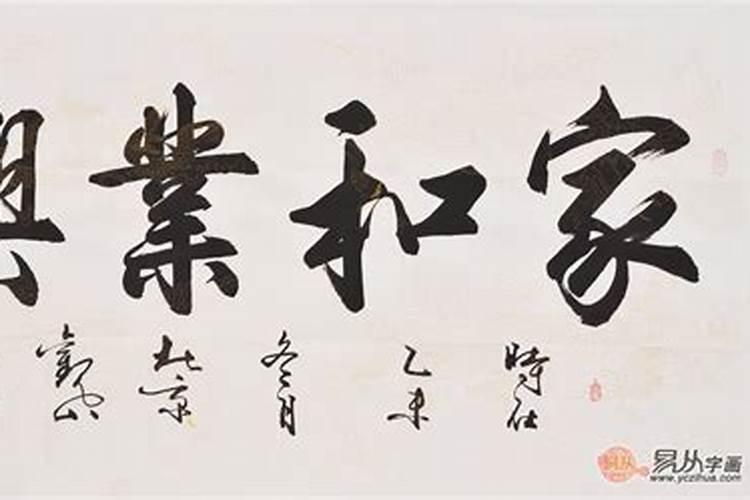 家和業興
時在乙未冬月北京
易从字画
www.yczihua.com